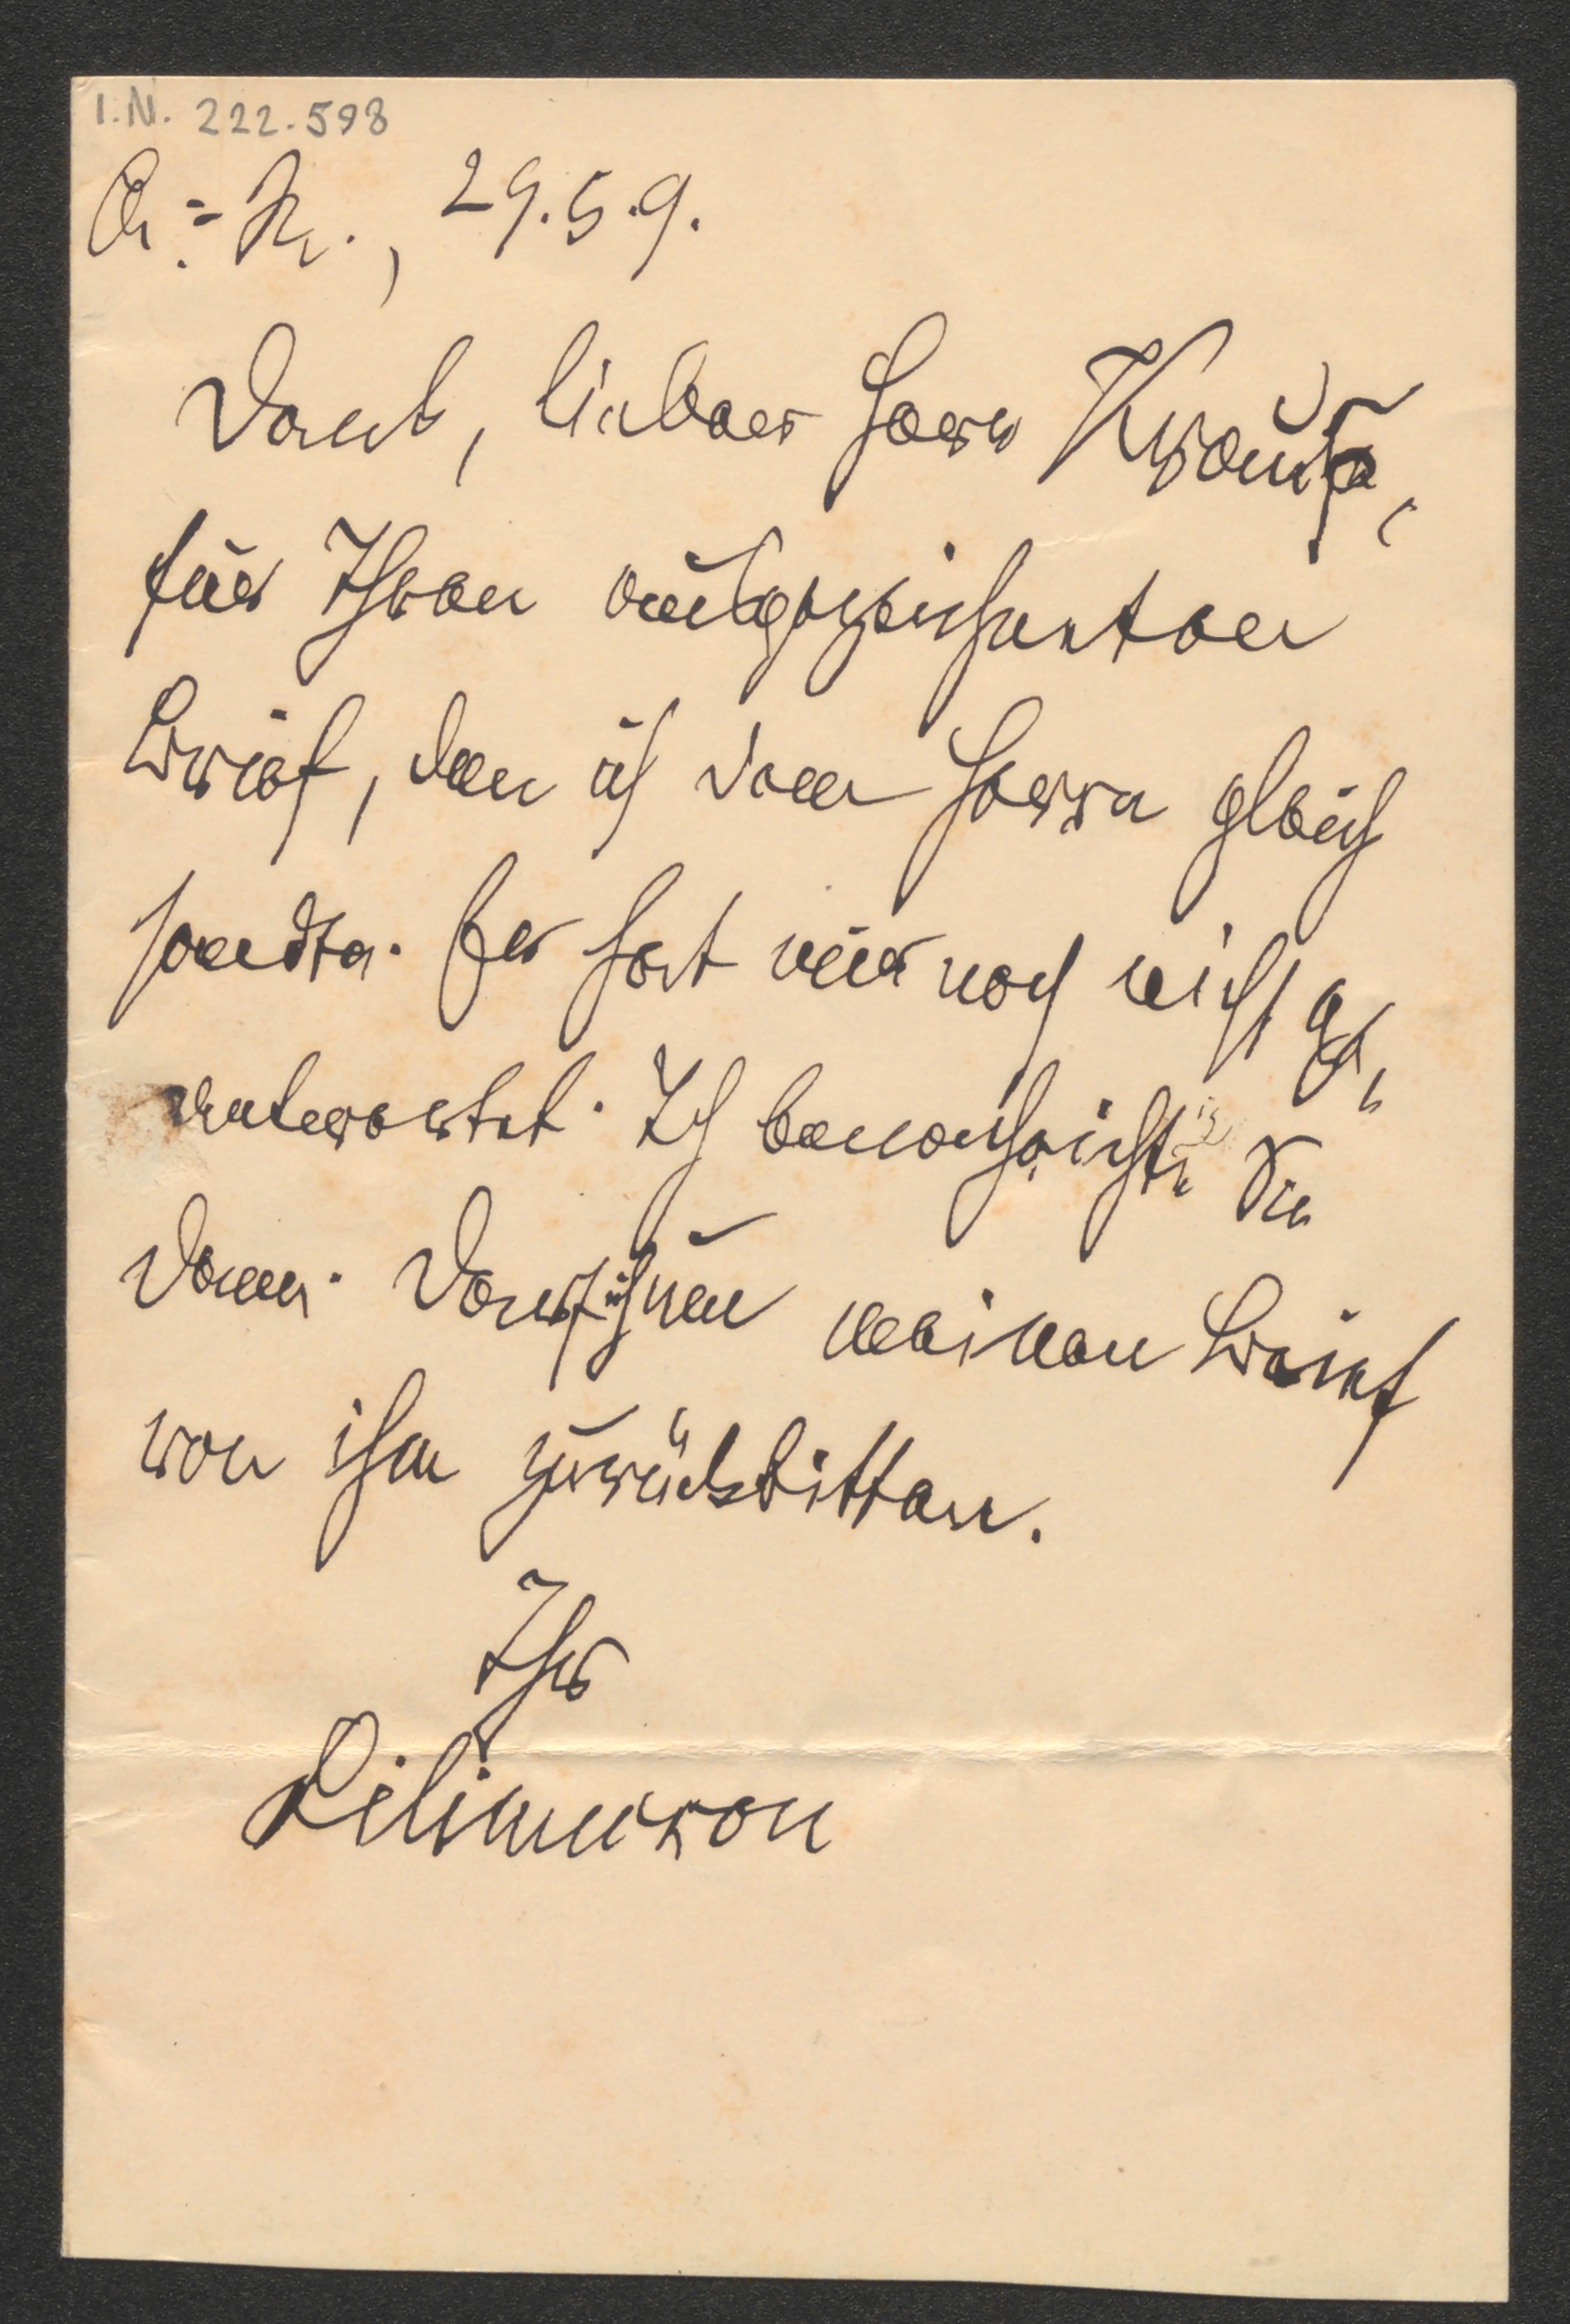 I.N. 222.598
A.=R., 29.5.9.
Dank, lieber Herr Kraus,
für Ihren ausgezeichneten
Brief, den ich dem Herrn gleich
sandte. Er hat mir noch nicht ge¬
antwortet. Ich benachrichtige Sie
dann. Darf ich um meinen Brief
von ihm zurückbitten.
Ihr
Liliencron